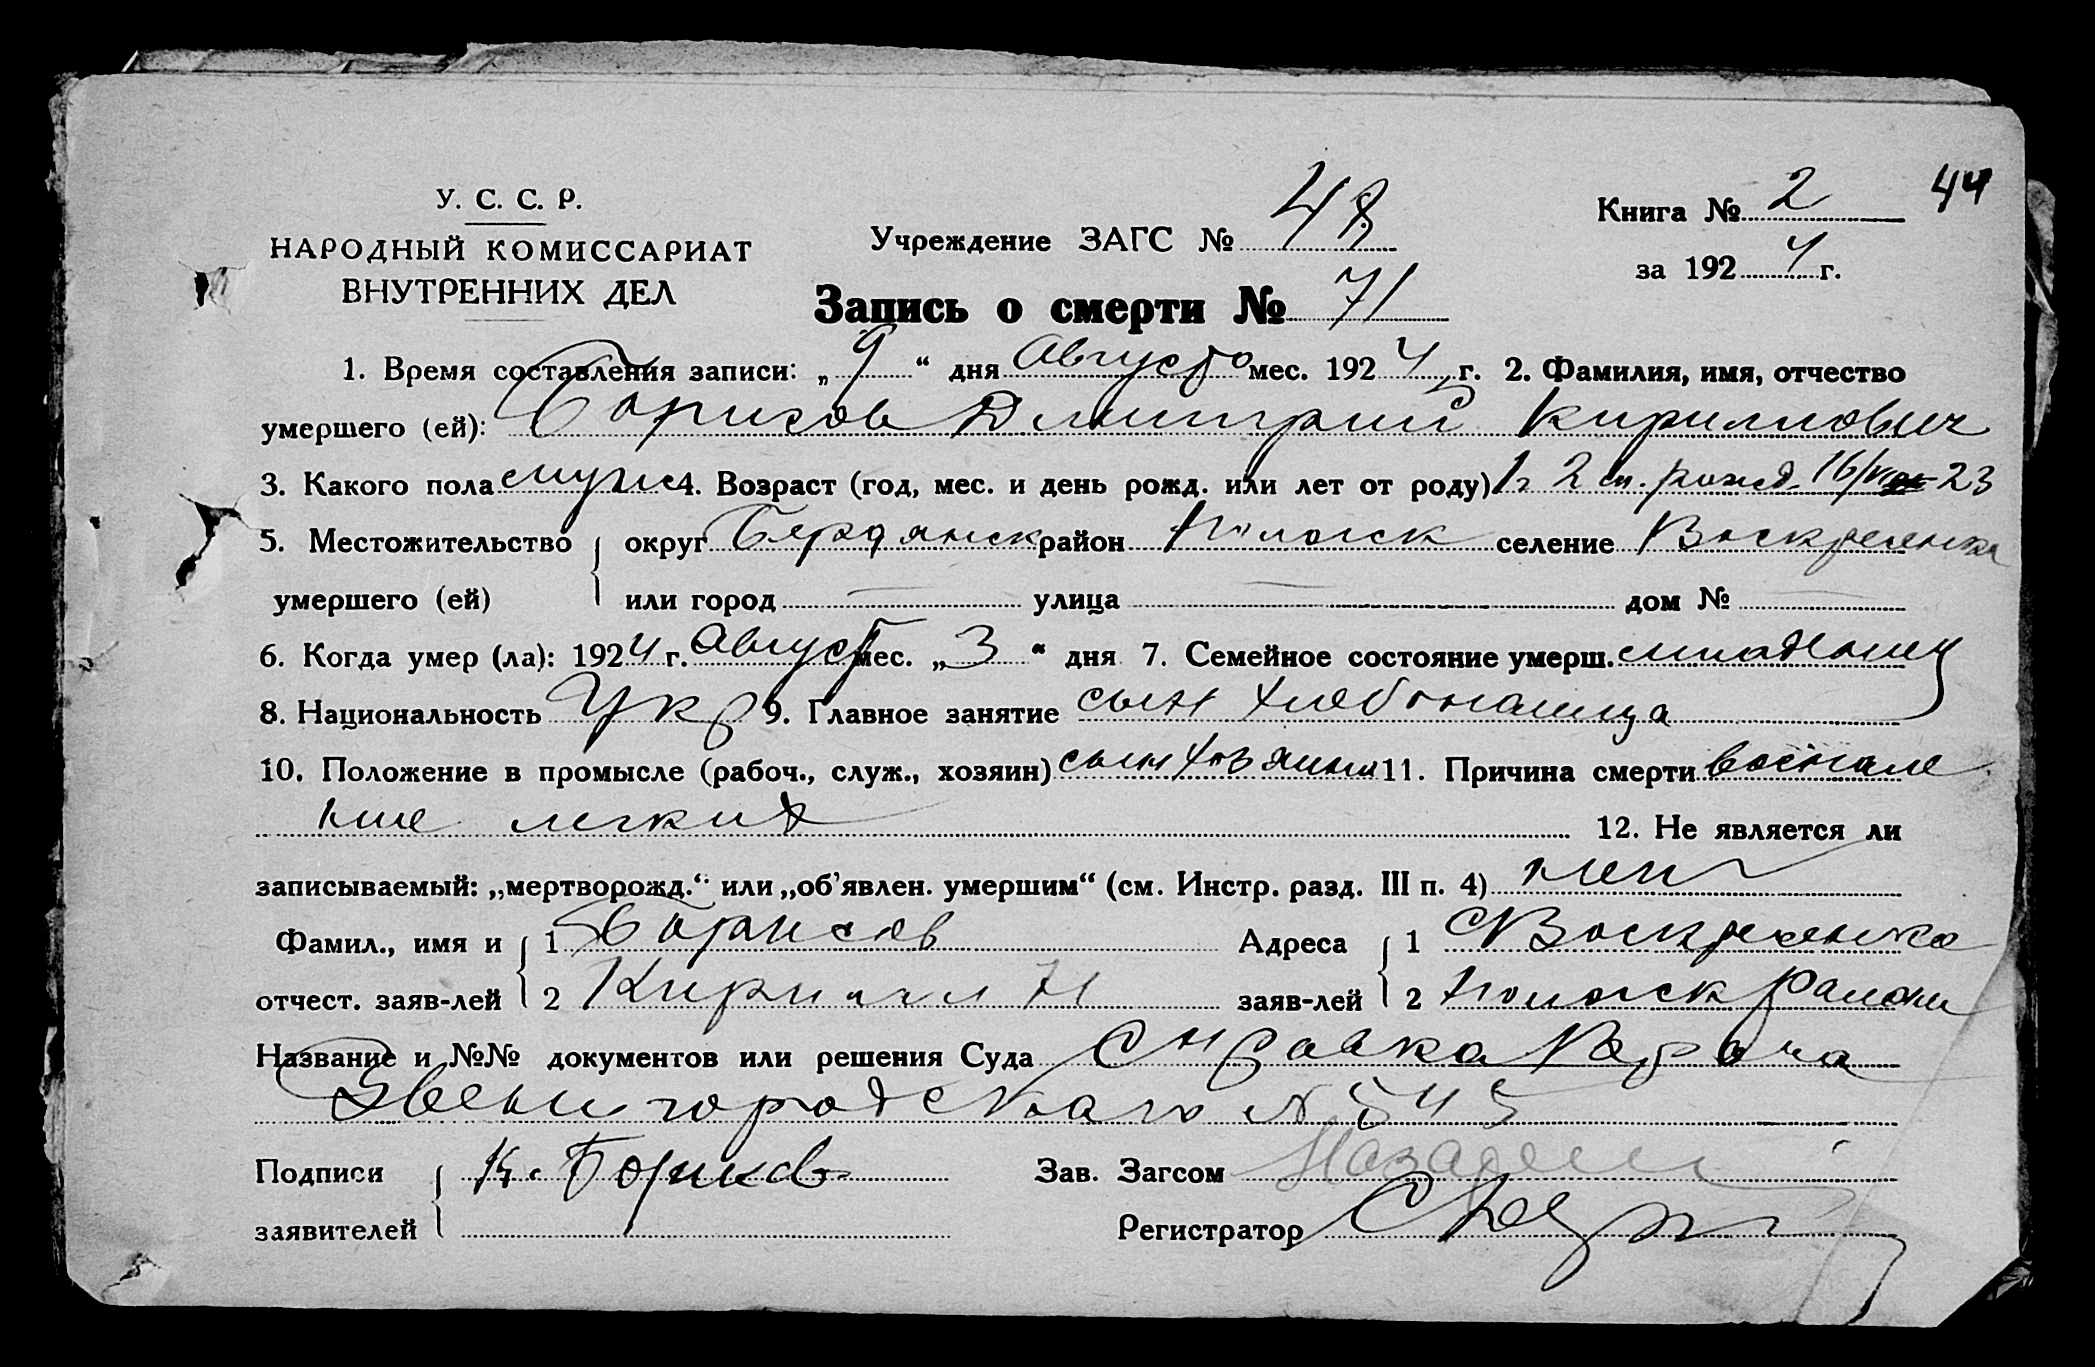 У. С. С. Р.
НАРОДНЫЙ КОМИССАРИАТ
ВНУТРЕННИХ ДЕЛ
Учреждение ЗАГС № 48
Книга № 2 44
за 1924 г.
Запись о смерти № 71
1. Время составления записи: „9“ дня Августа мес. 1924 г. 2. Фамилия, имя, отчество
умершего (ей): Борисов Дмитрий Кириллович
3. Какого пола муж 4. Возраст (год, мес. и день рожд. или лет от роду) 1 г. рожд. 16/VI 23
5. Местожительство { округ Бердянск район Пологск селение Воскресенка
умершего (ей) или город — улица — дом № —
6. Когда умер (ла): 1924 г. Август мес. „3“ дня 7. Семейное состояние умерш. младенец
8. Национальность Укр 9. Главное занятие сын хлебопашца
10. Положение в промысле (рабоч., служ., хозяин) сын хозяина 11. Причина смерти воспале
ние легких 12. Не является ли
записываемый: „мертворожд.“ или „об'явлен. умершим“ (см. Инстр. разд. III п. 4) нет
Фамил., имя и { 1 Борисов Адреса { 1 С Воскресенка
отчест. заяв-лей 2 Кирилл Н заяв-лей 2 Пологск района
Название и №№ документов или решения Суда Справка Врача
Звенигородского № 545
Подписи { К. Борисов Зав. Загсом
заявителей Регистратор